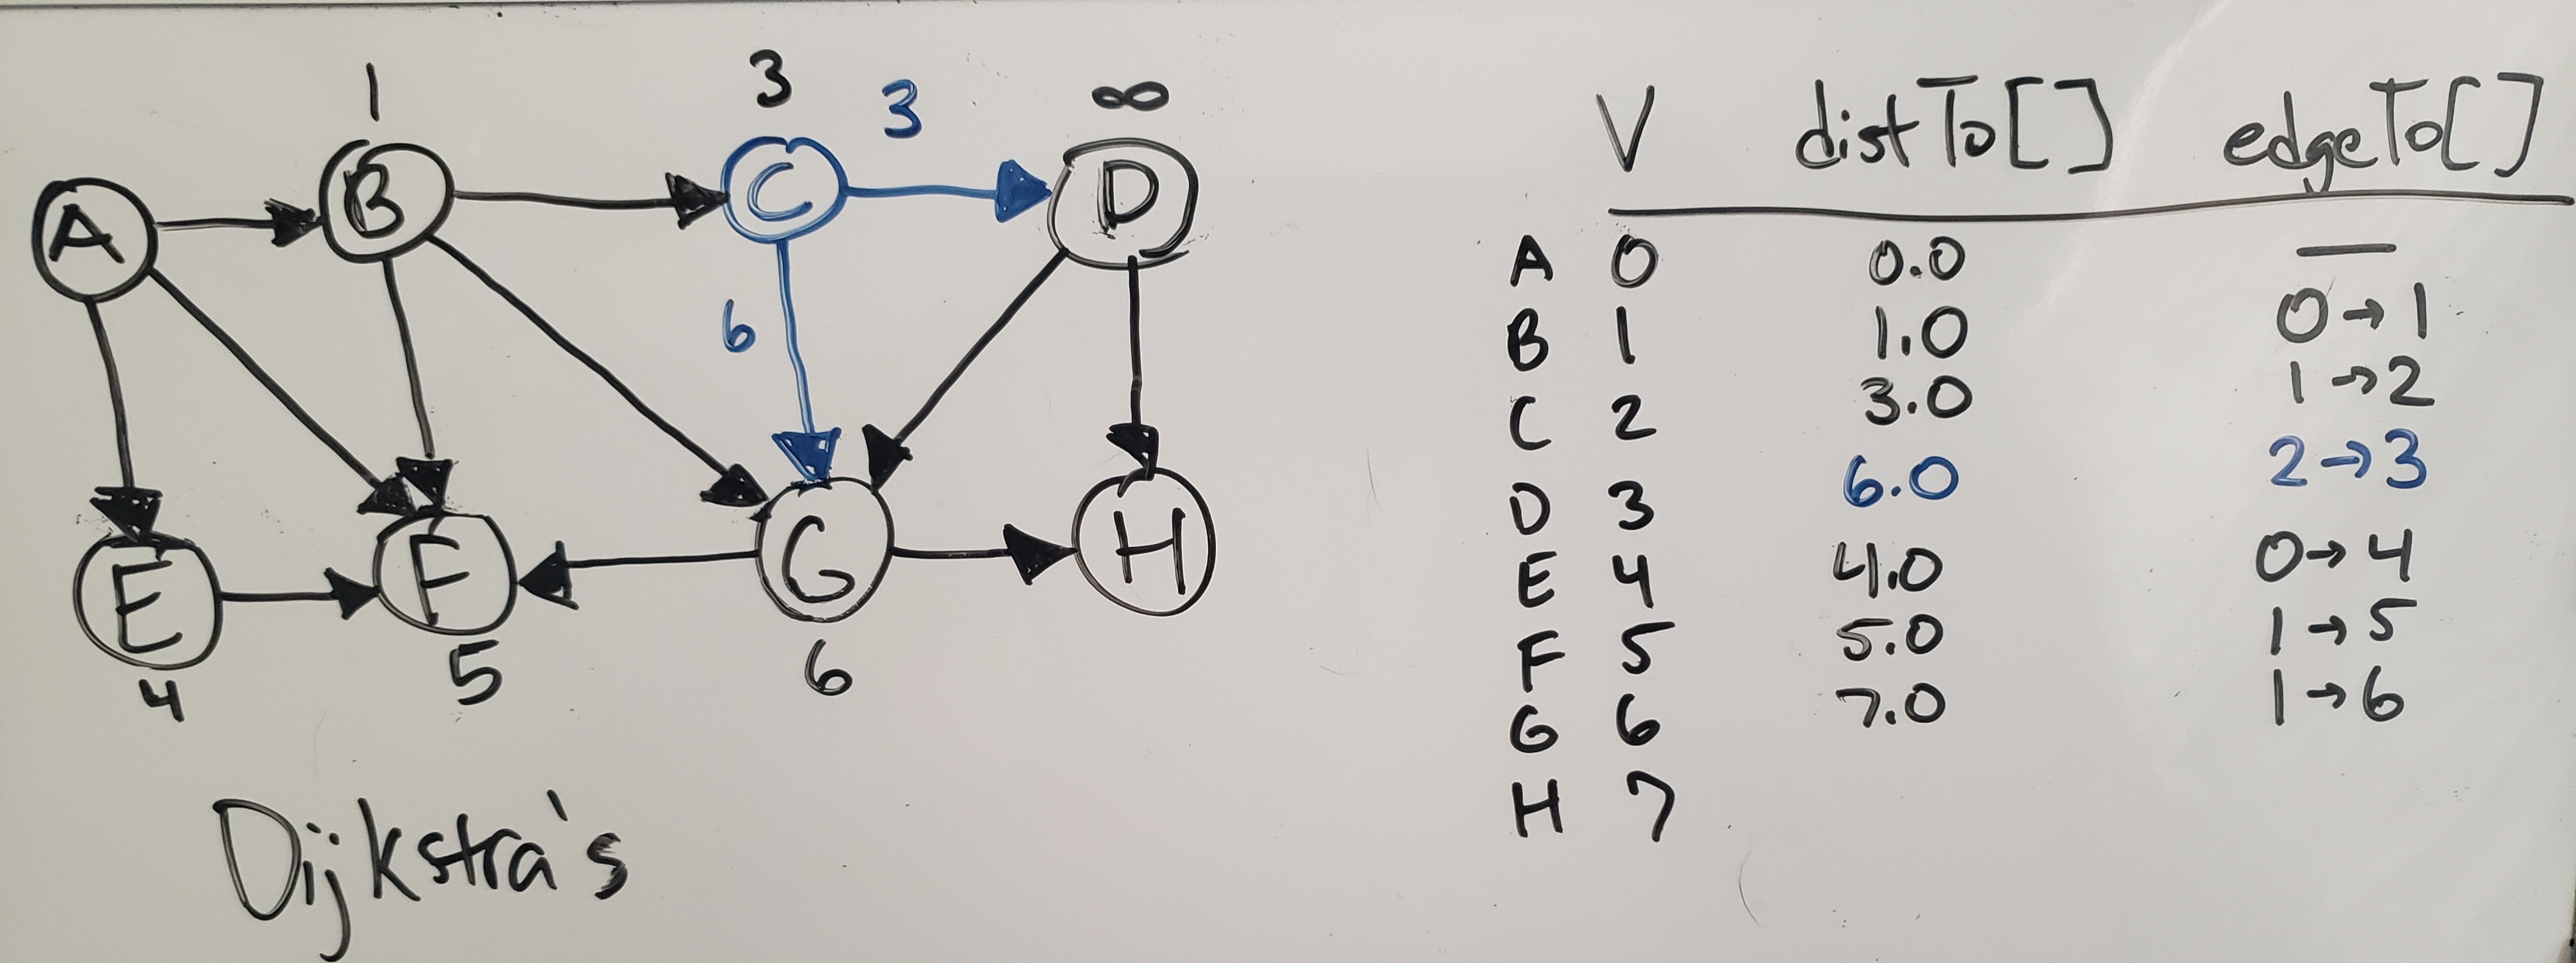 1 3 3 ∞
A B C D
6
E F G H
4 5 6
Dijkstra's
V distTo[] edgeTo[]
A 0 0.0 —
B 1 1.0 0→1
C 2 3.0 1→2
D 3 6.0 2→3
E 4 4.0 0→4
F 5 5.0 1→5
G 6 7.0 1→6
H 7